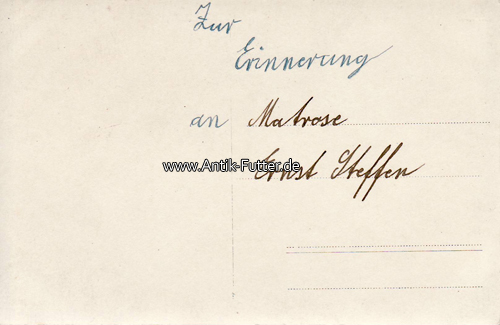 Zur
Erinnerung
an Matrose
www.Antik-Futter.de
Ernst Steffen